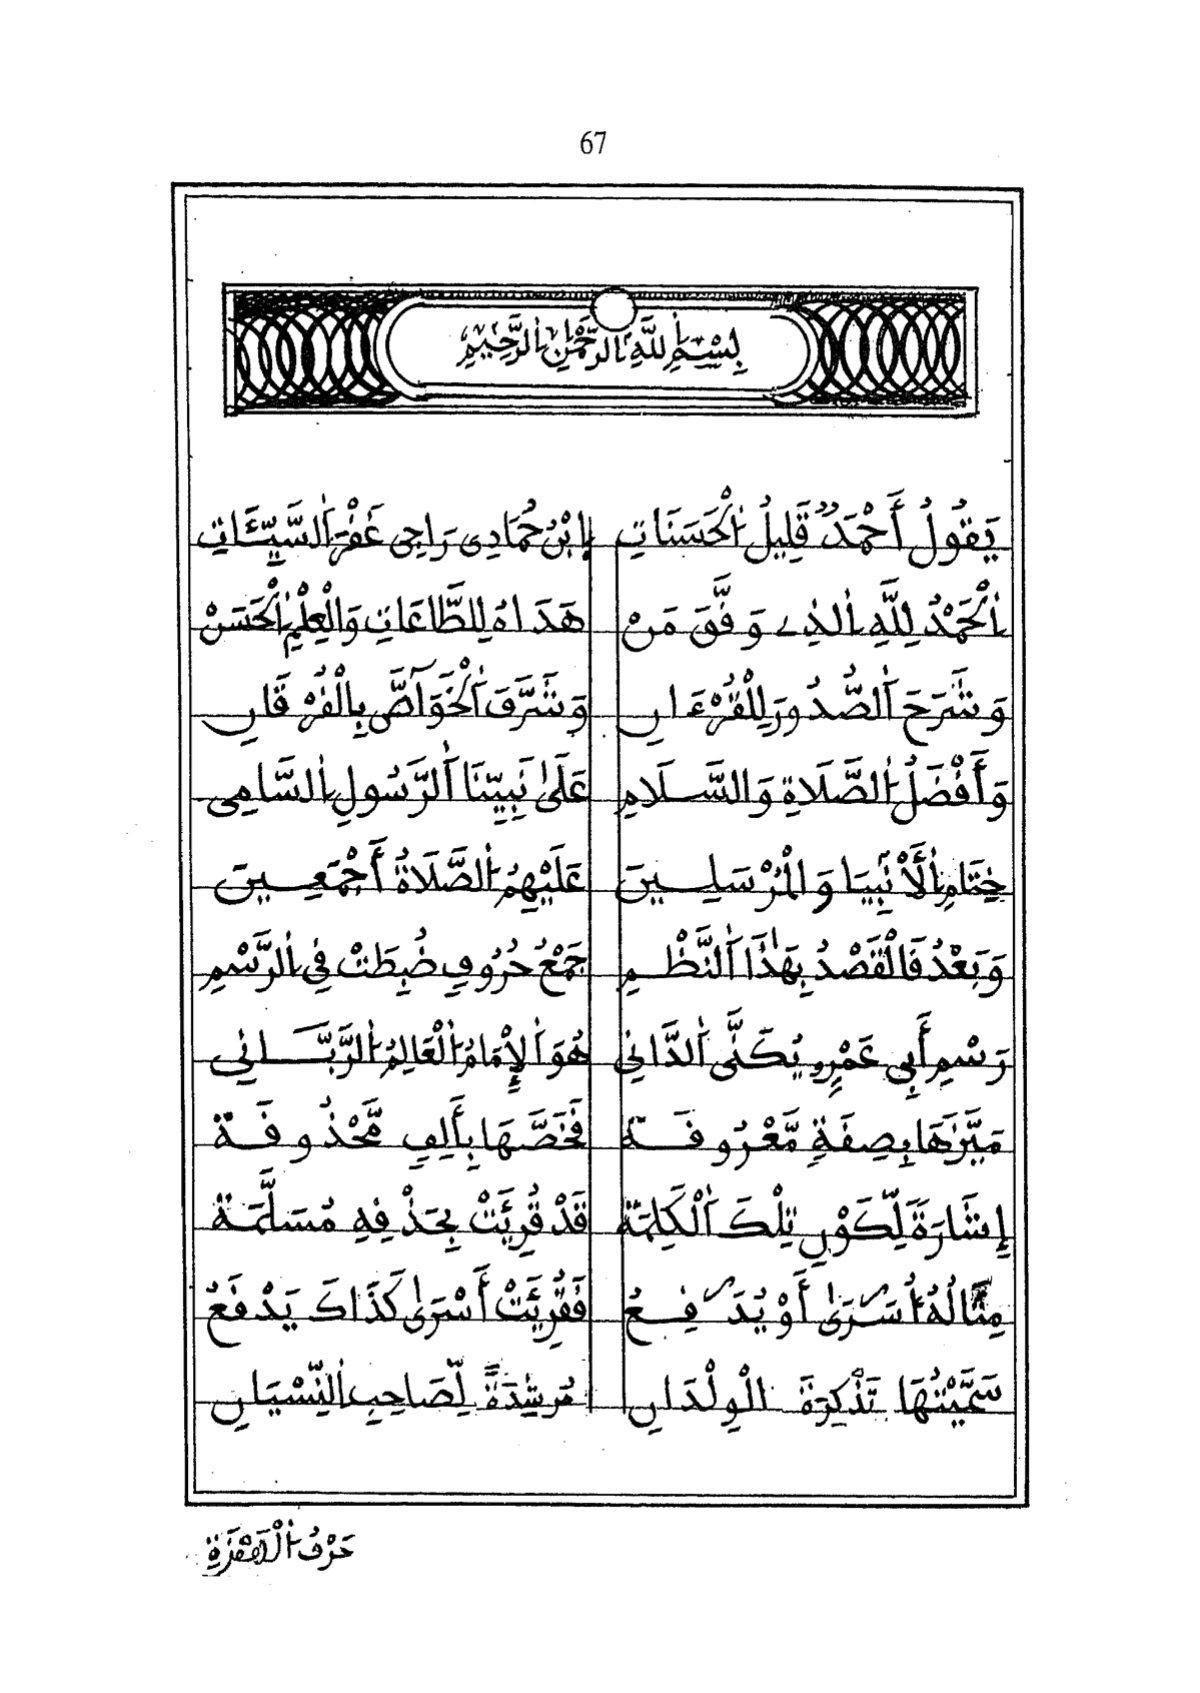 67
بِسْمِ اللَّهِ الرَّحْمَنِ الرَّحِيمِ
يَقُولُ أَحْمَدُ قَلِيلُ الْحَسَنَاتِ إِبْنُ حُمَادِى رَاجِى غَفْرَ السَّيِّئَاتِ
الْحَمْدُ لِلَّهِ الذِے وَفَّقَ مَنْ هَدَاهُ لِلطَّاعَاتِ وَالْعِلْمِ الْحَسَنْ
وَشَرَحَ الصُّدُورَ لِلْقُرْءَانِ وَشَرَّفَ الْخَوَآصَّ بِالْفُرْقَانِ
وَأَفْضَلُ الصَّلَاةِ وَالسَّلَامِ عَلَىٰ نَبِيِّنَا الرَّسُولِ السَّامِى
خِتَامِ الْأَنْبِيَا وَالْمُرْسَلِينَ عَلَيْهِمُ الصَّلَاةُ أَجْمَعِينَ
وَبَعْدُ فَالْقَصْدُ بِهَٰذَا النَّظْمِ جَمْعُ حُرُوفٍ ضُبِطَتْ فِي الرَّسْمِ
رَسْمِ أَبِي عَمْرٍو يُكَنَّى الدَّانِي هُوَ الْإِمَامُ الْعَالِمُ الرَّبَّانِي
مَيَّزَهَا بِصِفَةٍ مَّعْرُوفَةْ فَخَصَّهَا بِأَلِفٍ مَّحْذُوفَةْ
إِشَارَةً لِّكَوْنِ تِلْكَ الْكَلِمَةْ قَدْ قُرِئَتْ بِحَذْفِهِ مُسَلَّمَةْ
مِثَالُهُ أُسَرَىٰ أَوْ يُدَفِعُ فَقُرِئَتْ أَسْرَىٰ كَذَاكَ يَدْفَعُ
سَمَّيْتُهَا تَذْكِرَةَ الْوِلْدَانِ مُرْشِدَةً لِّصَاحِبِ النِّسْيَانِ
حَرْفُ الْهَمْزَةِ